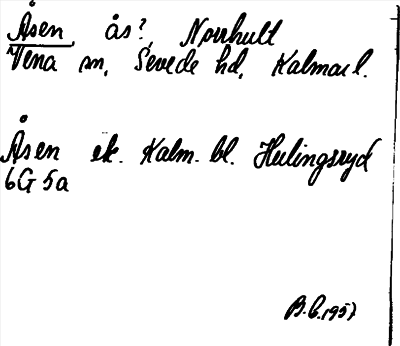 Åsen, ås?, Norrhult
Vena sn, Sevede hd, Kalmar l.
Åsen ek. Kalm. bl. Hulingsryd
6G 5a
B.G. 1957